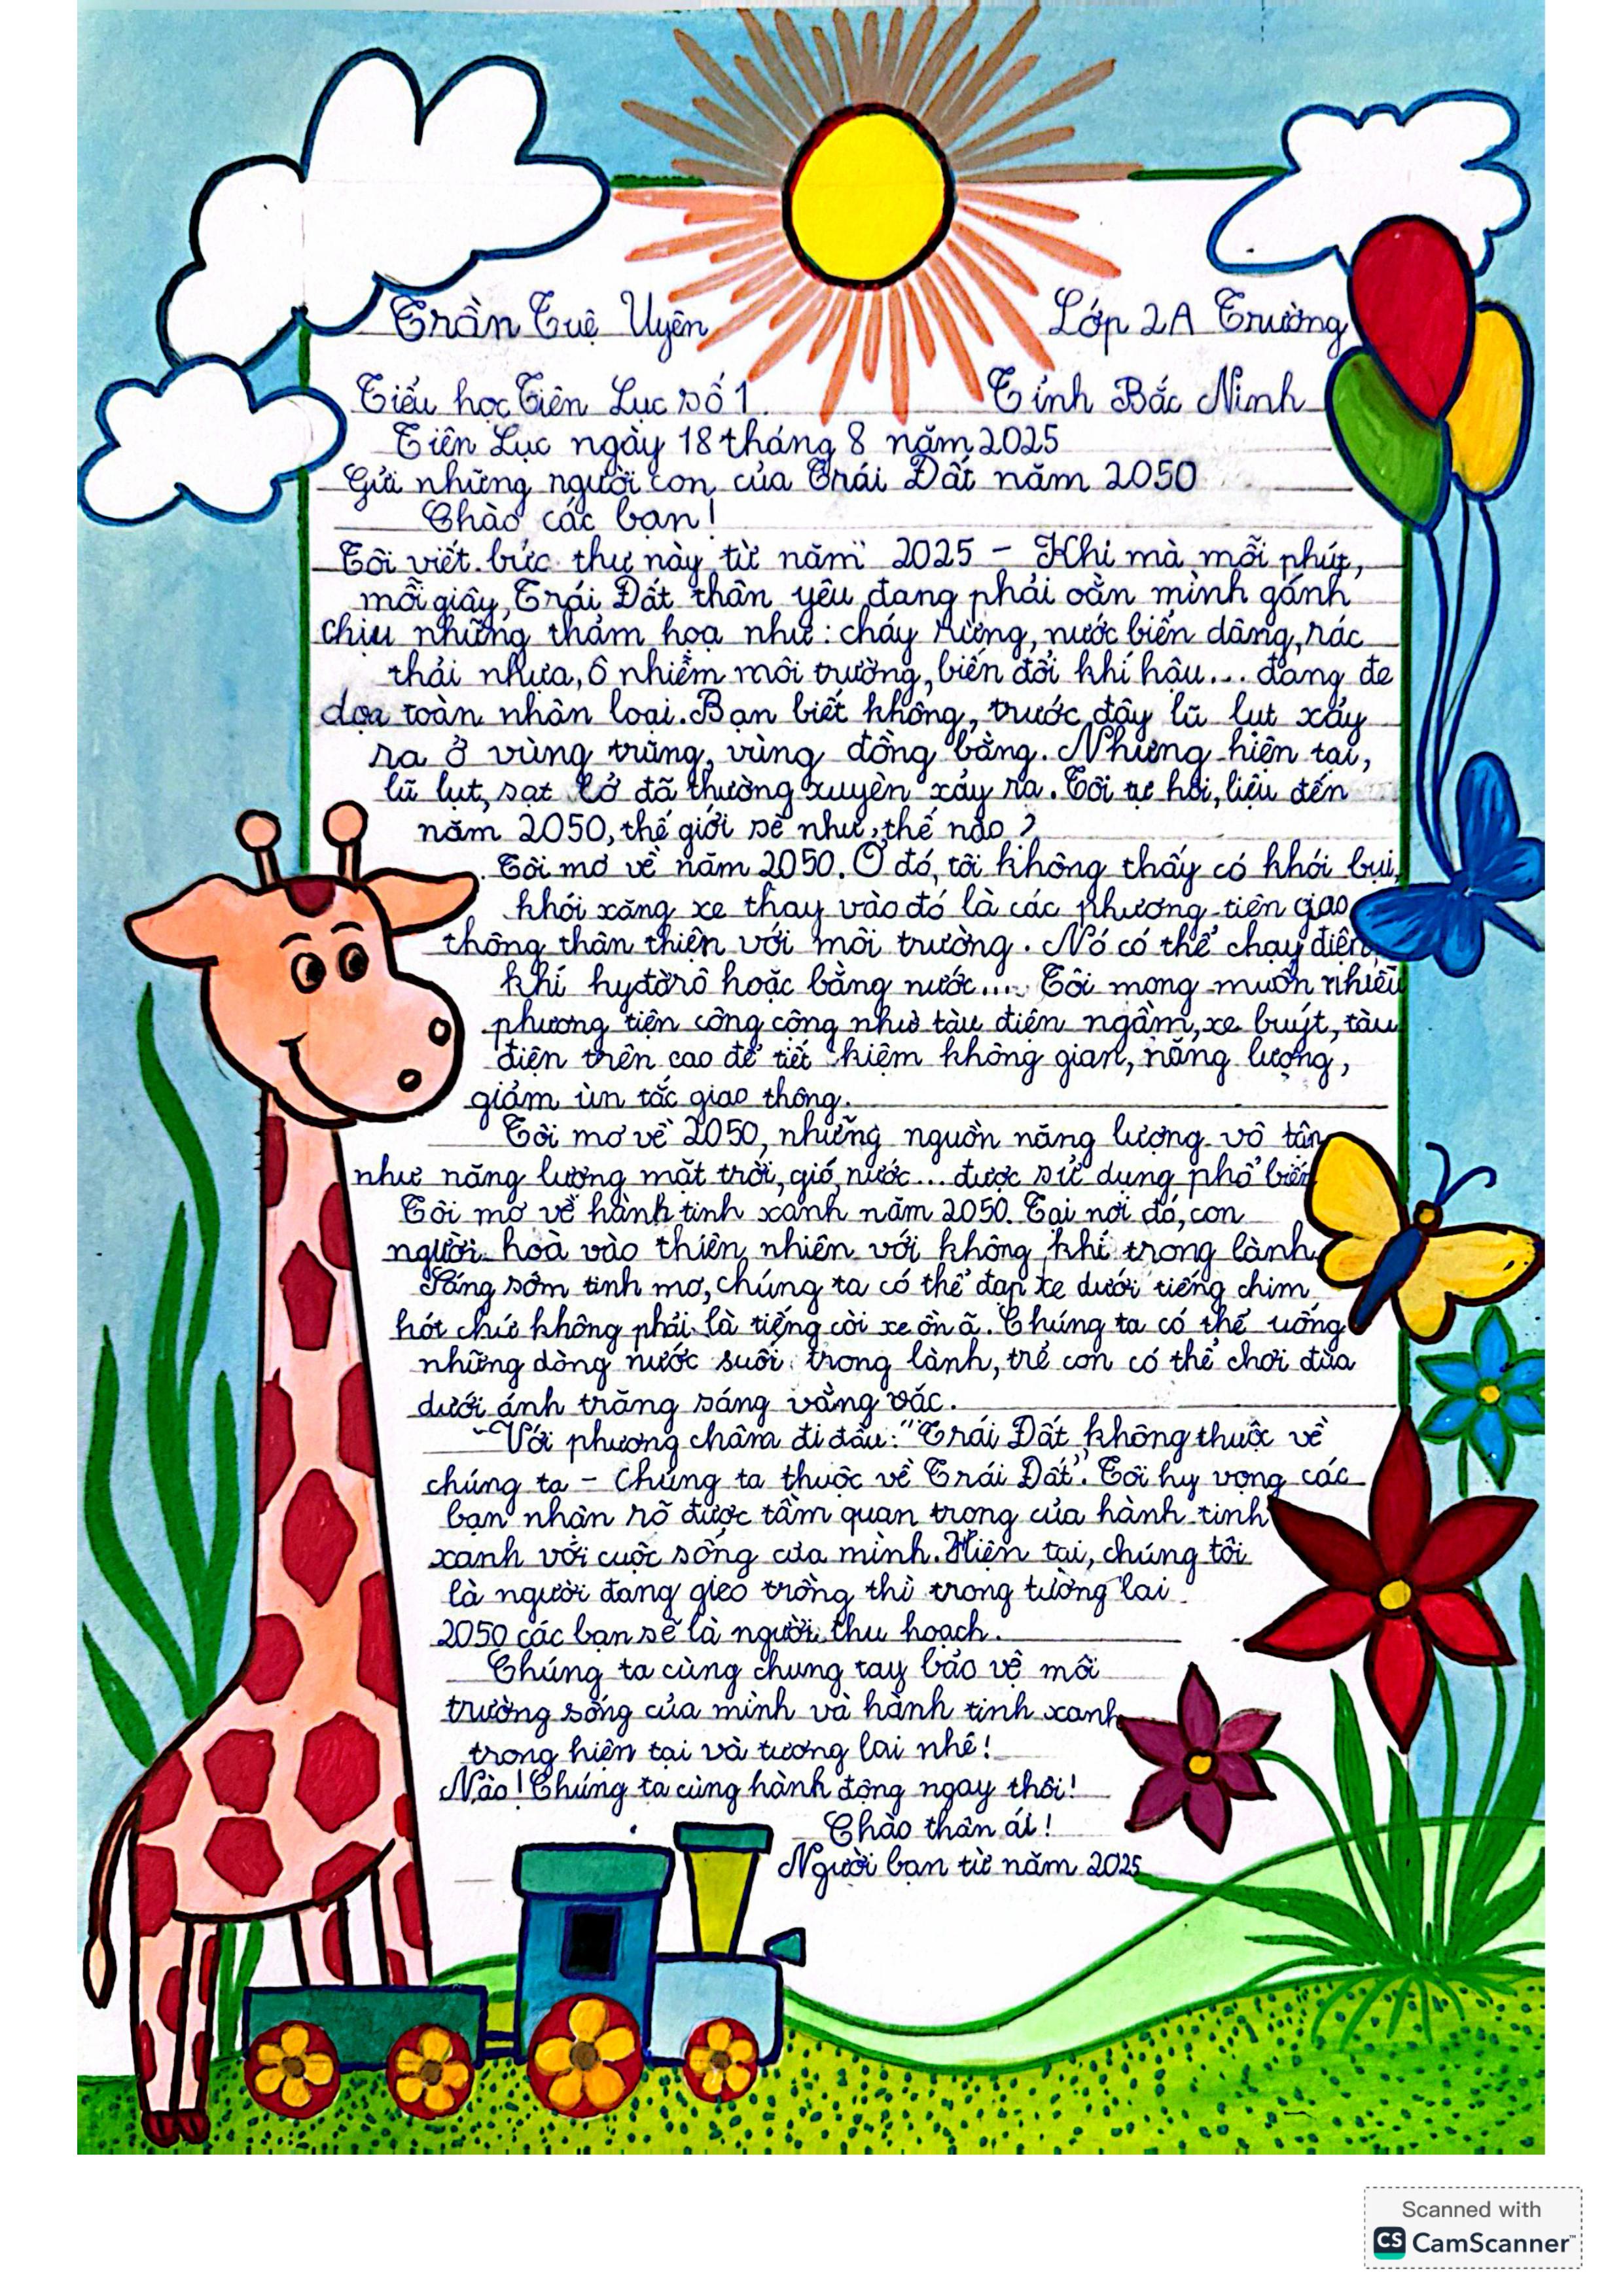 Trần Tuệ Uyên Lớp 2A Trường
Tiểu học Tiên Lục số 1 Tỉnh Bắc Ninh
Tiên Lục ngày 18 tháng 8 năm 2025
Gửi những người con của Trái Đất năm 2050
Chào các bạn!
Tôi viết bức thư này từ năm 2025 - Khi mà mỗi phút,
mỗi giây, Trái Đất thân yêu đang phải oằn mình gánh
chịu những thảm họa như: cháy rừng, nước biển dâng, rác
thải nhựa, ô nhiễm môi trường, biến đổi khí hậu... đang đe
dọa toàn nhân loại. Bạn biết không, trước đây lũ lụt xảy
ra ở vùng trũng, vùng đồng bằng. Nhưng hiện tại,
lũ lụt, sạt lở đã thường xuyên xảy ra. Tôi tự hỏi, liệu đến
năm 2050, thế giới sẽ như thế nào?
Tôi mơ về năm 2050. Ở đó, tôi không thấy có khói bụi,
khói xăng xe thay vào đó là các phương tiện giao
thông thân thiện với môi trường. Nó có thể chạy điện,
khí hyđờrô hoặc bằng nước.... Tôi mong muốn nhiều
phương tiện công cộng như tàu điện ngầm, xe buýt, tàu
điện trên cao để tiết kiệm không gian, năng lượng,
giảm ùn tắc giao thông.
Tôi mơ về 2050, những nguồn năng lượng vô tận
như năng lượng mặt trời, gió, nước... được sử dụng phổ biến
Tôi mơ về hành tinh xanh năm 2050. Tại nơi đó, con
người hoà vào thiên nhiên với không khí trong lành
Sáng sớm tinh mơ, chúng ta có thể đạp xe dưới tiếng chim
hót chứ không phải là tiếng còi xe ồn ã. Chúng ta có thể uống
những dòng nước suối trong lành, trẻ con có thể chơi đùa
dưới ánh trăng sáng vằng vặc.
Với phương châm đi đầu: "Trái Đất không thuộc về
chúng ta - Chúng ta thuộc về Trái Đất". Tôi hy vọng các
bạn nhận rõ được tầm quan trọng của hành tinh
xanh với cuộc sống của mình. Hiện tại, chúng tôi
là người đang gieo trồng thì trong tường lai
2050 các bạn sẽ là người thu hoạch.
Chúng ta cùng chung tay bảo vệ môi
trường sống của mình và hành tinh xanh
trong hiện tại và tương lai nhé!
Nào! Chúng ta cùng hành động ngay thôi!
Chào thân ái!
Người bạn từ năm 2025
Scanned with
CS CamScanner